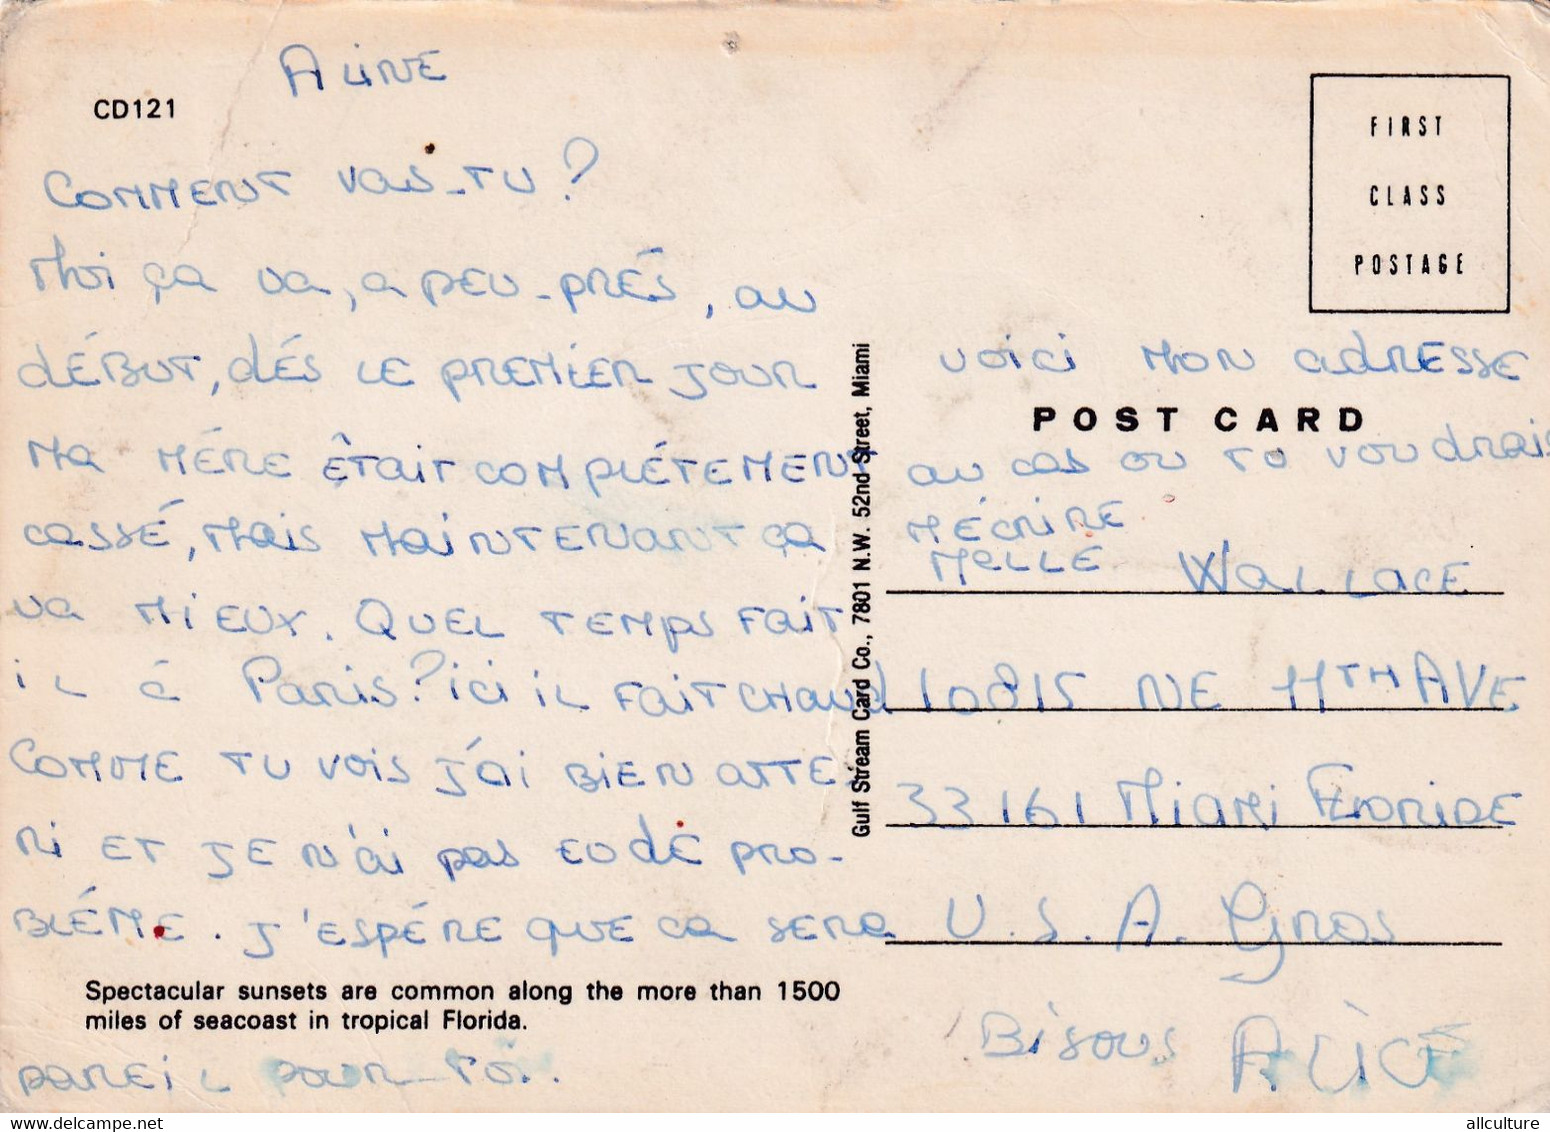 ALINE
CD121
COMMENT VAS-TU?
Moi ça va, a PEU-PRÉS, au
DÉBUT, dÉS LE PREMIER JOUR
Ma MÉRE ÊTAIT COMPLÉTEMENT
cassÉ, Mais MAINTENANT ça
va MIEUX. QUEL TEMPS FAIT
iL à Paris? ici iL FAIT CHAUD
COMME TU vois J'ai BIEN ATTE-
Ri ET JE N'ai pas EU dE PRO-
BLÉME. J'ESPÉRE QUE ça SERA
Spectacular sunsets are common along the more than 1500
miles of seacoast in tropical Florida.
pareiL pour-Toi.
Gulf Stream Card Co., 7801 N.W. 52nd Street, Miami
FIRST
CLASS
POSTAGE
voici MON adRESSE
POST CARD
au cas ou TU voudrais
MÉCRIRE
MELLE WALLACE
10815 NE 11TH AVE
33161 Miami FLORIDE
U.S.A. GROS
Bisous ALICE
allculture